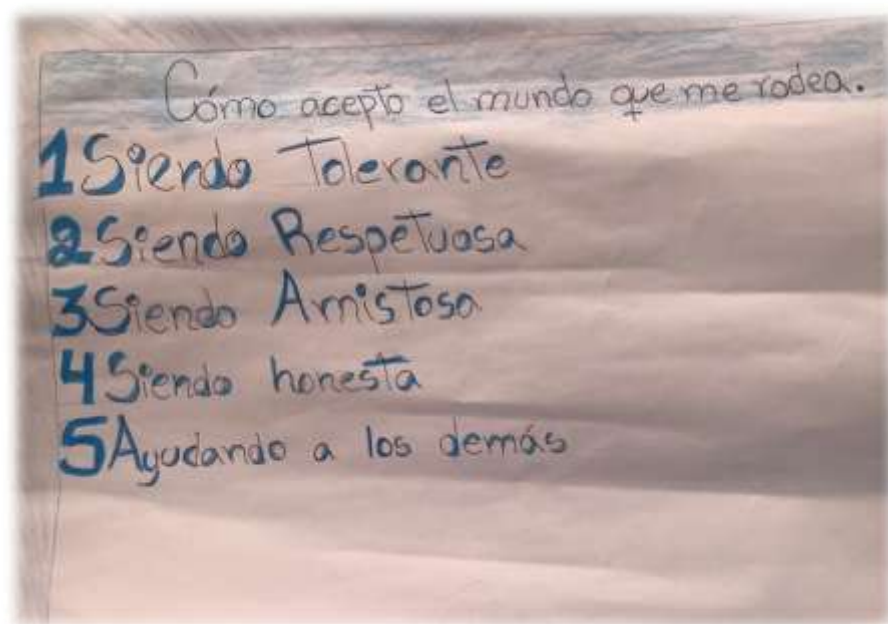 Cómo acepto el mundo que me rodea.
1 Siendo Tolerante
2 Siendo Respetuosa
3 Siendo Amistosa
4 Siendo honesta
5 Ayudando a los demás